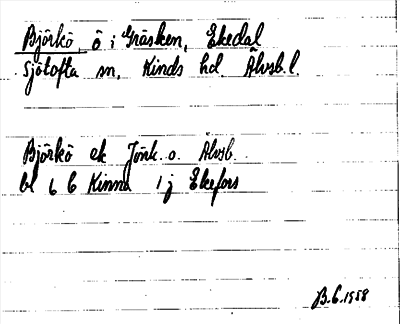 Björkö, ö i Gräsken, Ekedal
Sjötofta sn, Kinds hd Älvsb. l.
Björkö ek Jönk. o. Älvsb.
bl 6 Kinna 1 j Ekefors
B.E. 1958